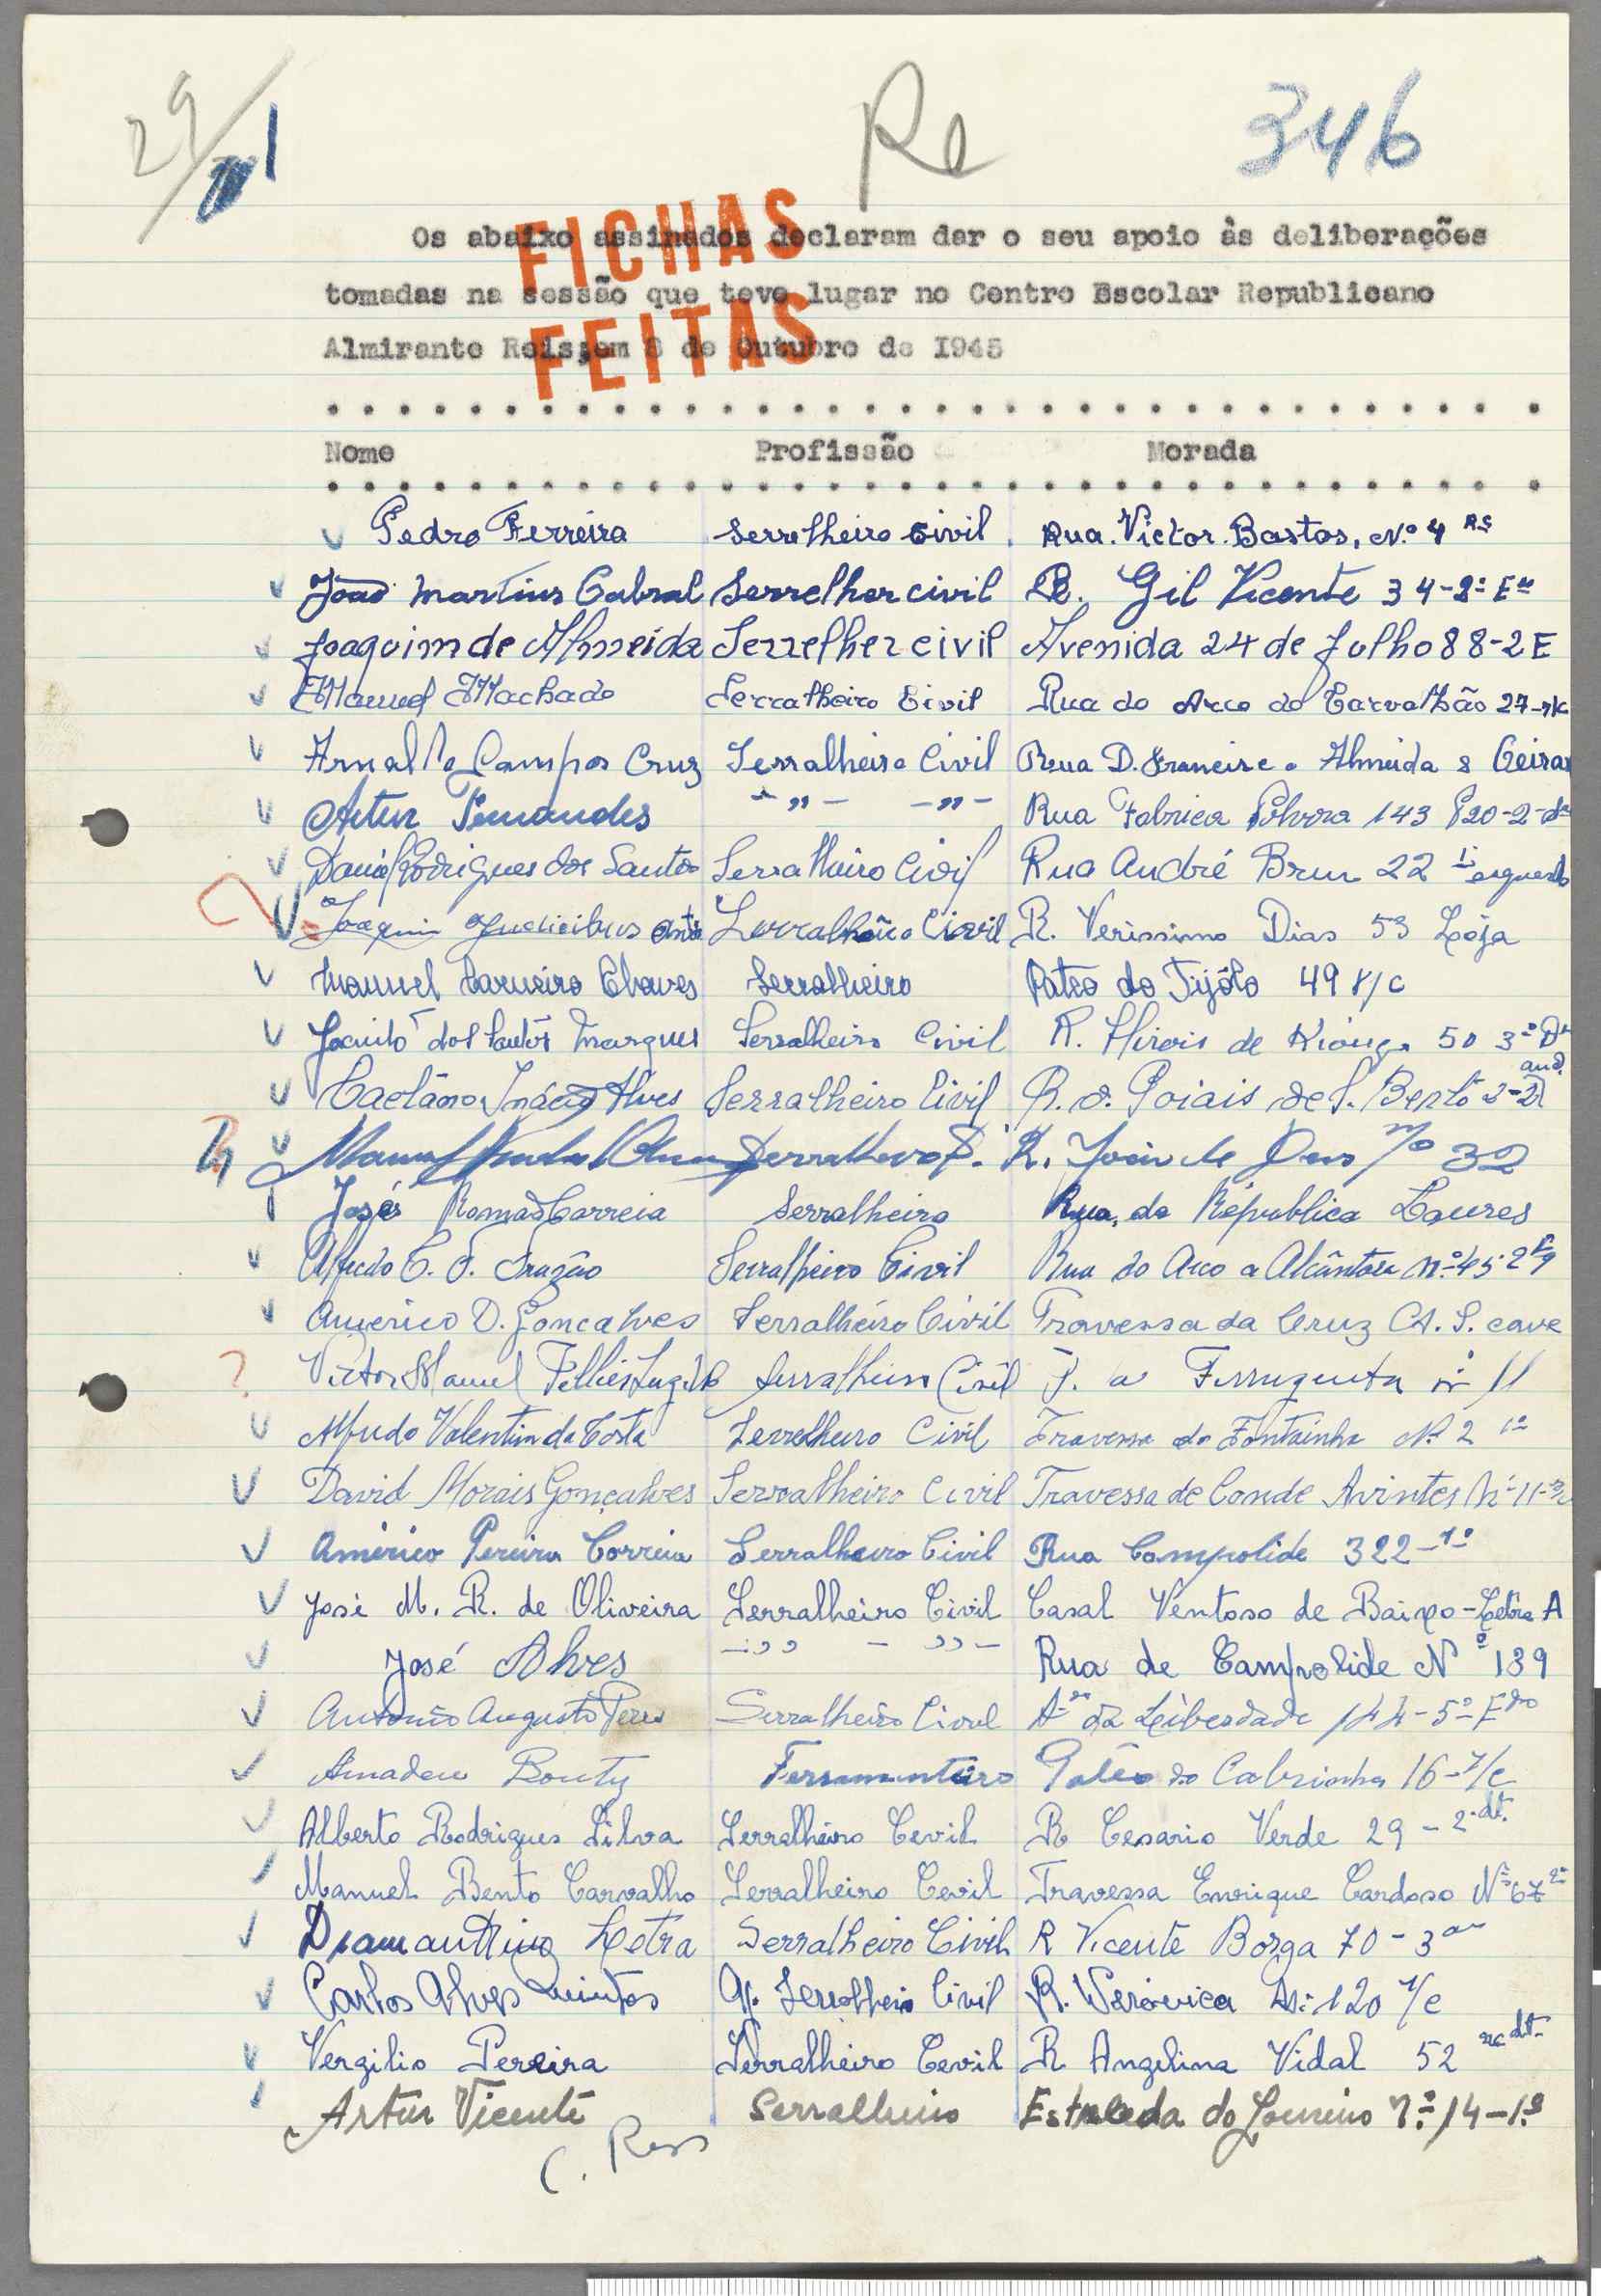 29/1
Re
346
FICHAS
FEITAS
Os abaixo assinados declaram dar o seu apoio às deliberações
tomadas na sessão que teve lugar no Centro Escolar Republicano
Almirante Reis, em 8 de Outubro de 1945
Nome Profissão Morada
Pedro Ferreira Serrelheiro Civil Rua Victor Bastos, N.º 4 R/C
João Martins Cabral Serrelher civil R. Gil Vicente 34-2º Eº
Joaquim de Almeida Serrelher civil Avenida 24 de Julho 88-2 E
Manuel Machado Serralheiro Civil Rua do Arco do Carvalhão 27
Arnaldo Campos Cruz Serralheiro Civil Rua D. Francisco Almeida 8 Oeiras
Artur Fernandes -"- -"- Rua Fabrica Polvora 143 P20-2-
Daniel Rodrigues dos Santos Serralheiro Civil Rua André Brun 22 1º esquerdo
Joaquim Serralheiro Civil R. Verissimo Dias 53 Loja
Manuel Carneiro Chaves Serralheiro Pateo do Tijolo 49 r/c
Jacinto dos Santos Marques Serralheiro Civil R. Hirois de Kionga 50 3º Dt
Caetano Inácio Alves Serralheiro Civil R. d. Poiais de S. Bento 2-2 and.
Manuel Serralheiro R. João de Deus nº 32
José Romão Correia Serralheiro Rua da Républica Loures
Alfredo C. F. Frazão Serralheiro Civil Rua do Arco a Alcântara nº 45-2
Americo D. Gonçalves Serralheiro Civil Travessa da Cruz cave
Victor Manuel Serralheiro Civil nº 11
Alfredo Valentim da Costa Serrelheiro Civil Travessa da Fontainha Nº 2 1º
David Morais Gonçalves Serralheiro Civil Travessa de Conde Avintes Nº 11
Américo Pereira Correia Serralheiro Civil Rua Campolide 322-1º
José M. R. de Oliveira Serralheiro Civil Casal Ventoso de Baixo-Letra A
José Alves -"- -"- Rua de Campolide Nº 139
António Augusto Peres Serralheiro Civil Aª da Liberdade 144-5º Edo
Amadeu Bouty Ferramenteiro Patêo do Cabrinha 16-r/c
Alberto Rodrigues Silva Serralheiro Cevil R Cesario Verde 29-2º dt.
Manuel Bento Carvalho Serralheiro Cevil Travessa Enrique Cardoso Nº 67 2º
Diamantino Letra Serralheiro Civil R Vicente Borga 70-3º
Carlos Alves Quintos Serralheiro Civil R. Veronica Nº 120 r/c
Vergilio Pereira Serralheiro Cevil R Angelina Vidal 52 rc dt
Artur Vicente Serralheiro Estraleda do Loureiro nº 14-1º